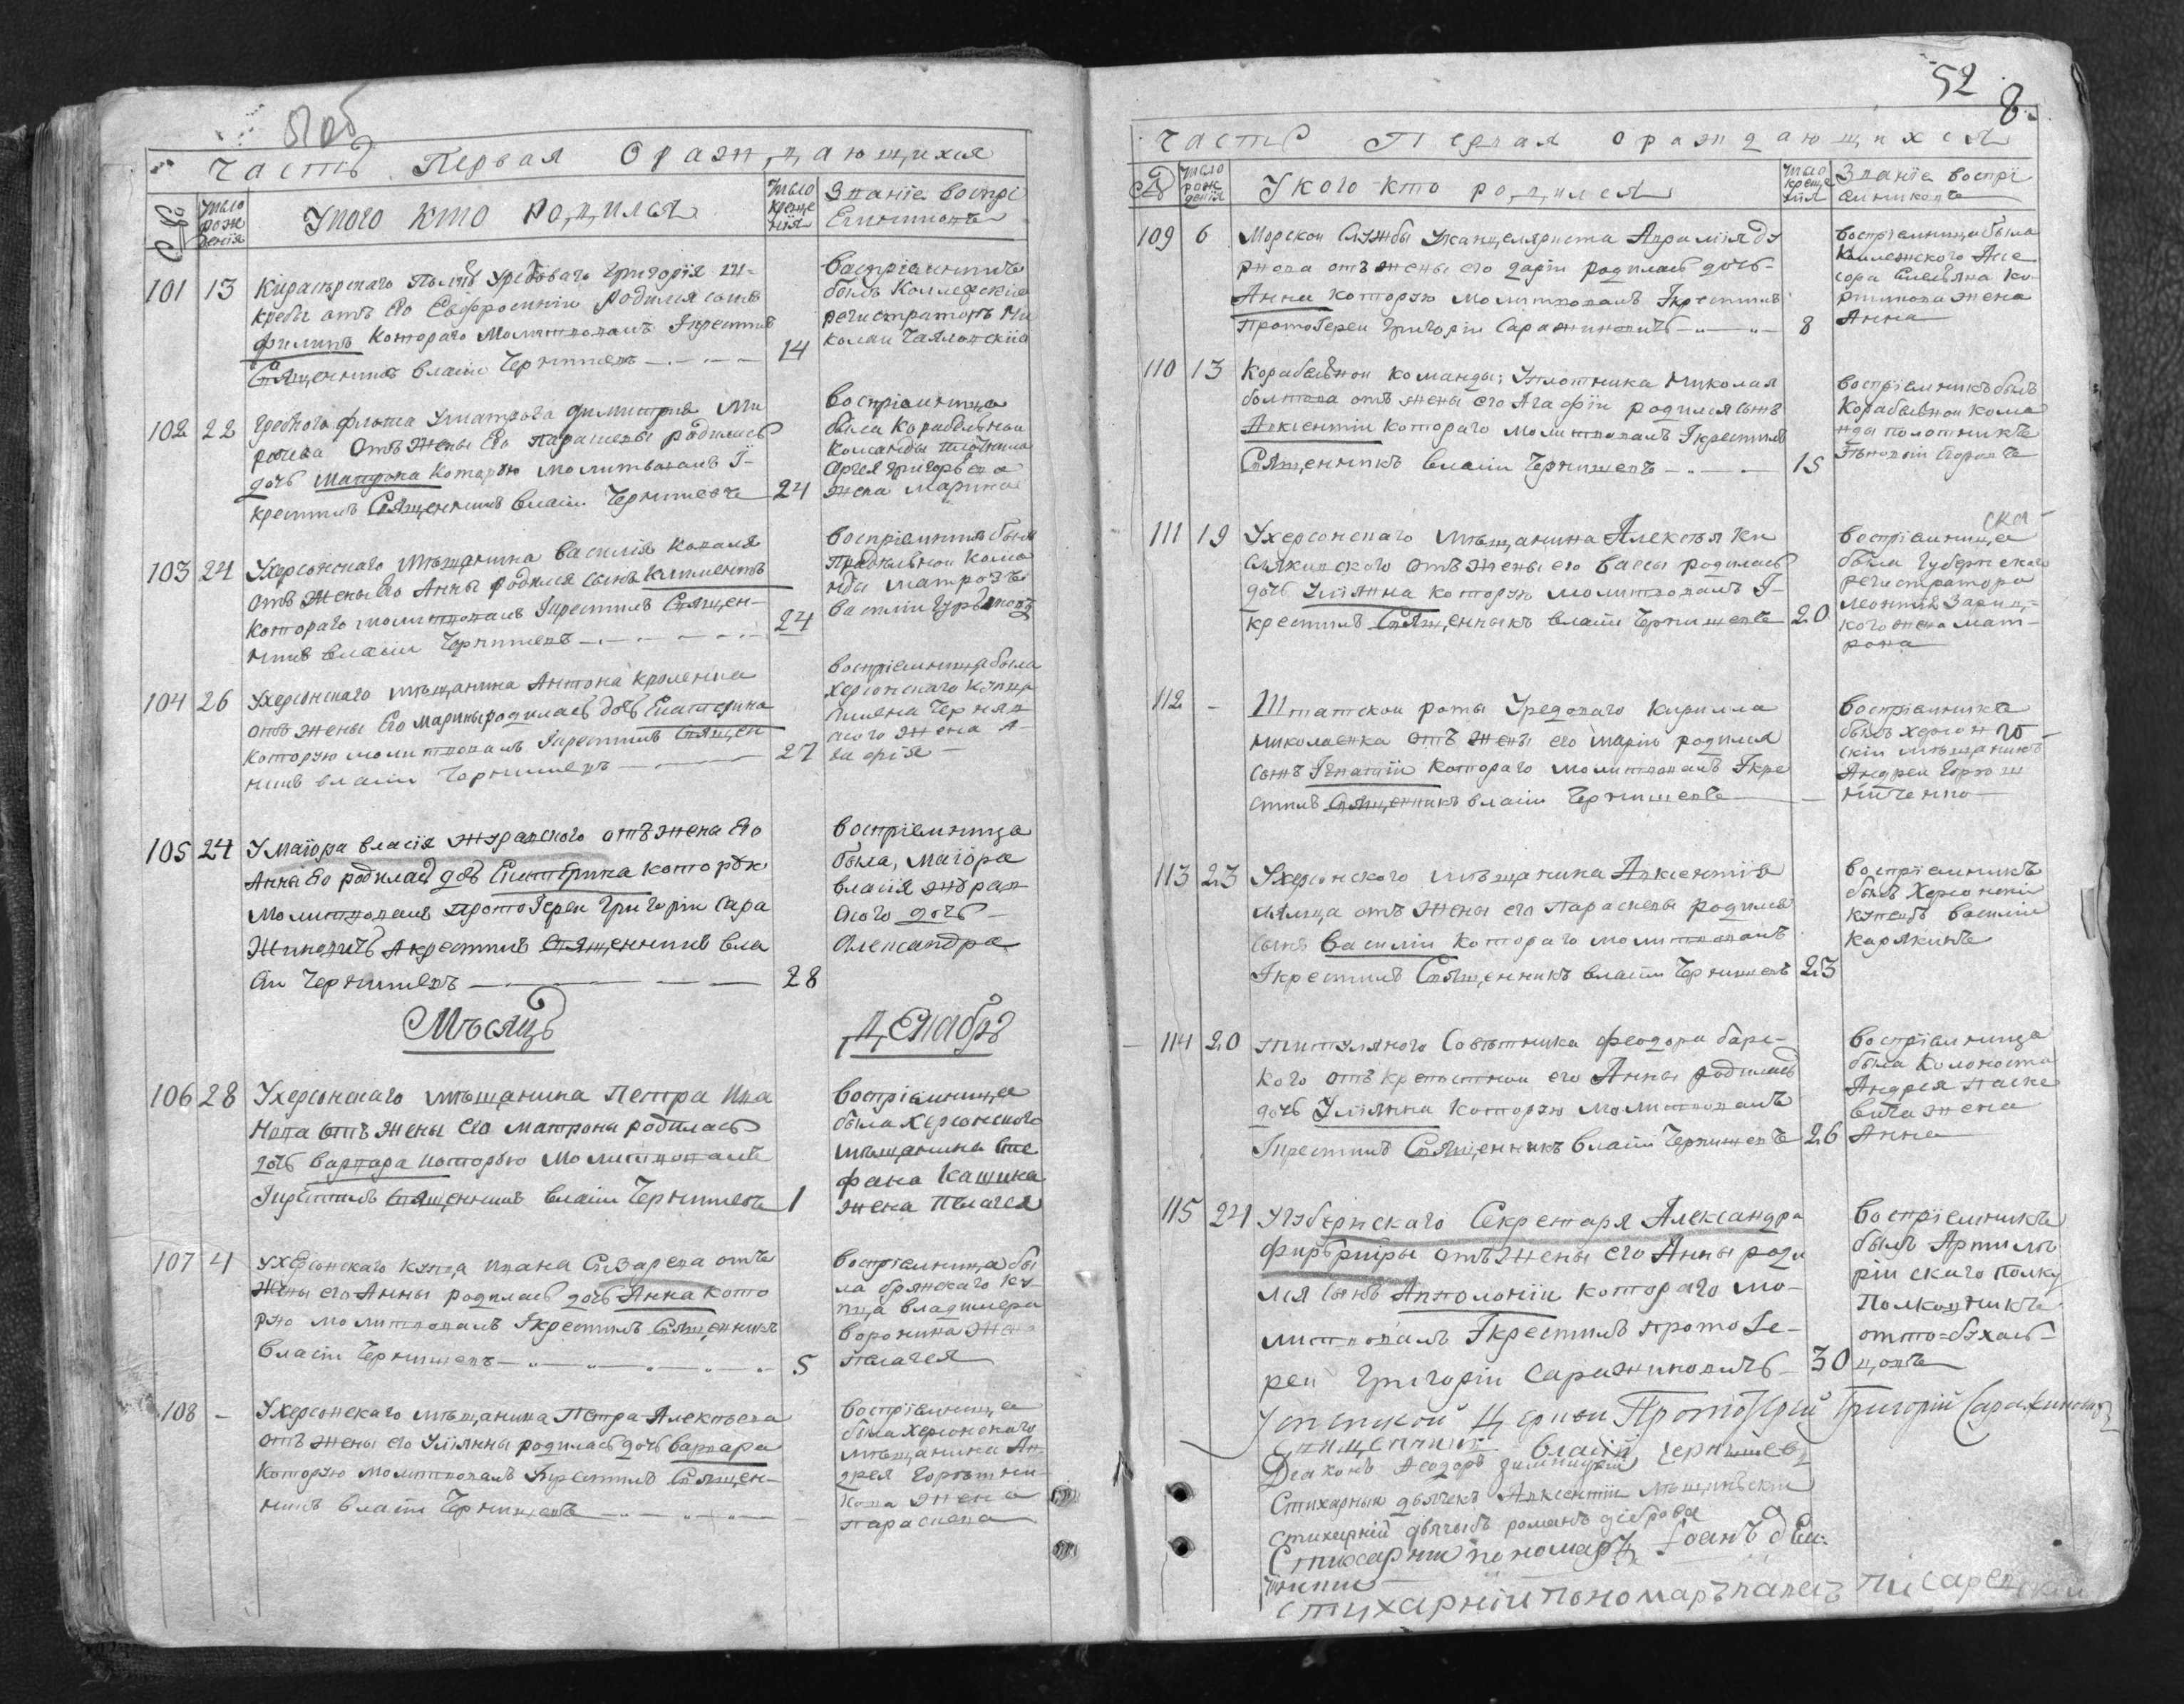 51 об
Часть Первая О раждающихся
№
Число рождения
У кого кто родился
Число крещения
Званïе Воспрïемниковъ
101 13 Кирасырскаго Полку Урядоваго Григорïя
отъ Его Евфросинïи родился сынъ
Филипъ Котораго Молитвовалъ Iкрестилъ
Священникъ Власïи Чернишевъ 14
Воспрïемникъ
былъ Коллежскïи
регистраторъ Ни
колаи
102 22 Гребного флота Уматроза Димитрия
отъ Жены Его Параскевы родилась
дочь Матрона Которую Молитвовалъ I-
крестилъ Священникъ Власïи Чернишевъ 24
Воспрïемница
была Корабельнои
Команды плотника
Сергея Григорьева
жена Марина
103 24 Ухерсонскаго Мѣщанина Василïя Коваля
отъ Жены Его Анны родился сынъ Климентъ
Котораго молитвовалъ Iкрестилъ Священ-
никъ Власïи Чернишевъ 24
Воспрïемникъ былъ
Корабельнои Кома
нды матрозъ
Василïи
104 26 Ухерсонскаго мѣщанина Антона Кроленка
отъ жены Его Марины родилась дочь Екатерина
Которую молитвовалъ Iкрестилъ Священ
никъ Власïи Чернишевъ 27
Воспрïемница была
херсонскаго Купца
Черняв
ского жена А-
гафïя
105 24 Умаïора Власïя Журавского отъ жены Его
Анны Его родилась дочь Екатерина Которую
Молитвовалъ ПротоIереи Григорïи Сара
жиновичъ Акрестилъ Священникъ Вла
сïи Чернишевъ 28
Воспрïемница
была, Маïора
Власïя Журав
ского дочь
Александра
Мѣсяцъ Декабрь
106 28 Ухерсонскаго мѣщанина Петра Ива
нова отъ жены Его Матроны родилась
дочь Варвара Которую Молитвовалъ
Iкрестилъ Священникъ Власïи Чернишевъ 1
Воспрïемница
была Херсонского
мѣщанина Сте
фана Кашика
жена Пелагея
107 4 Ухерсонскаго Купца Ивана Сизарева отъ
Жены его Анны родилась дочь Анна Кото
рую молитвовалъ Iкрестилъ Священникъ
Власïи Чернишевъ 5
Воспрïемница бы
ла брянскаго Ку-
пца Владимера
Воронина Жена
Пелагея
108 - Ухерсонскаго мѣщанина Петра Алексѣева
отъ жены его Улïянны родилась дочь Варвара
Которую Молитвовалъ Iкрестилъ Священ-
никъ Власïи Чернишевъ
Воспрïемница
была Херсонскаго
мѣщанина Ан-
дрея
кова жена
Параскева
52
8
Часть Первая О раждающихся
№
Число рождения
У кого кто родился
Число крещения
Званïе Воспрïемниковъ
109 6 Морскои Службы Уканцеляриста Аврамïя Ду
рнова отъ жены его Дарïи родилась дочь-
Анна Которую Молитвовалъ Iкрестилъ
ПротоIереи Григорïи Саражиновичъ 8
Воспрïемница была
Коллежского Асе
сора Емельяна Ко-
ртинова жена
Анна
110 13 Корабельнои Команды; Уплотника Николая
Болтова отъ жены его Агафïи родился сынъ
Авксентïи Котораго молитвовалъ Iкрестилъ
Священникъ Власïи Чернишевъ 15
Воспрïемникъ былъ
Корабельнои кома
нды полотникъ
111 19 Ухерсонскаго Мѣщанина Алексѣя
отъ жены его Вассы родилась
дочь Улïянна Которую молитвовалъ I-
крестилъ Священникъ Власïи Чернишевъ 20
Воспрïемница
была Губернскаго
регистратора
Леонтия Зариц-
кого жена Мат-
рона
112 - Штатскои роты Урядоваго Кирилла
Николаенка отъ жены его Марïи родился
сынъ Iгнатïи Котораго Молитвовалъ Iкре
стилъ Священникъ Власïи Чернишевъ
Воспрïемникъ
былъ херсон
скïи мѣщанинъ
Андреи
ниченко
113 23 Ухерсонскаго мѣщанина Авксентïя
отъ жены его Параскевы родился
сынъ Василïи Котораго молитвовалъ
Iкрестилъ Священникъ Власïи Чернишевъ 23
Воспрïемникъ
былъ Херсонскïи
купецъ Василïи
Карякинъ
114 20 Утитулярного Совѣтника Феодора Барс-
кого отъ крепостнои его Анны родилась
дочь Улïянна Которую Молитвовалъ
Iкрестилъ Священникъ Власïи Чернишевъ 26
Воспрïемница
была Колониста
Андрея Паске
вича жена
Анна
115 24 Угубернскаго Секретаря Александра
отъ жены его Анны роди
лся сынъ Апполонïи Котораго мо-
литвовалъ Iкрестилъ протоIе-
реи Григорïи Саражиновичъ 30
Воспрïемникъ
былъ Артилле
рïискаго Полку
Полковникъ
Отто=
Успенской Церкви ПротоIерей Григорïй Саражиновичъ
Священникъ Власïй Чернышевъ
Дïаконъ Феодоръ
Стихарный дьячекъ Авксентïи
Стихарнïй дьячокъ романъ дïброва
Стихарнïи пономарь Iоанъ
стихарнïи пономаръ павелъ писаревскïи